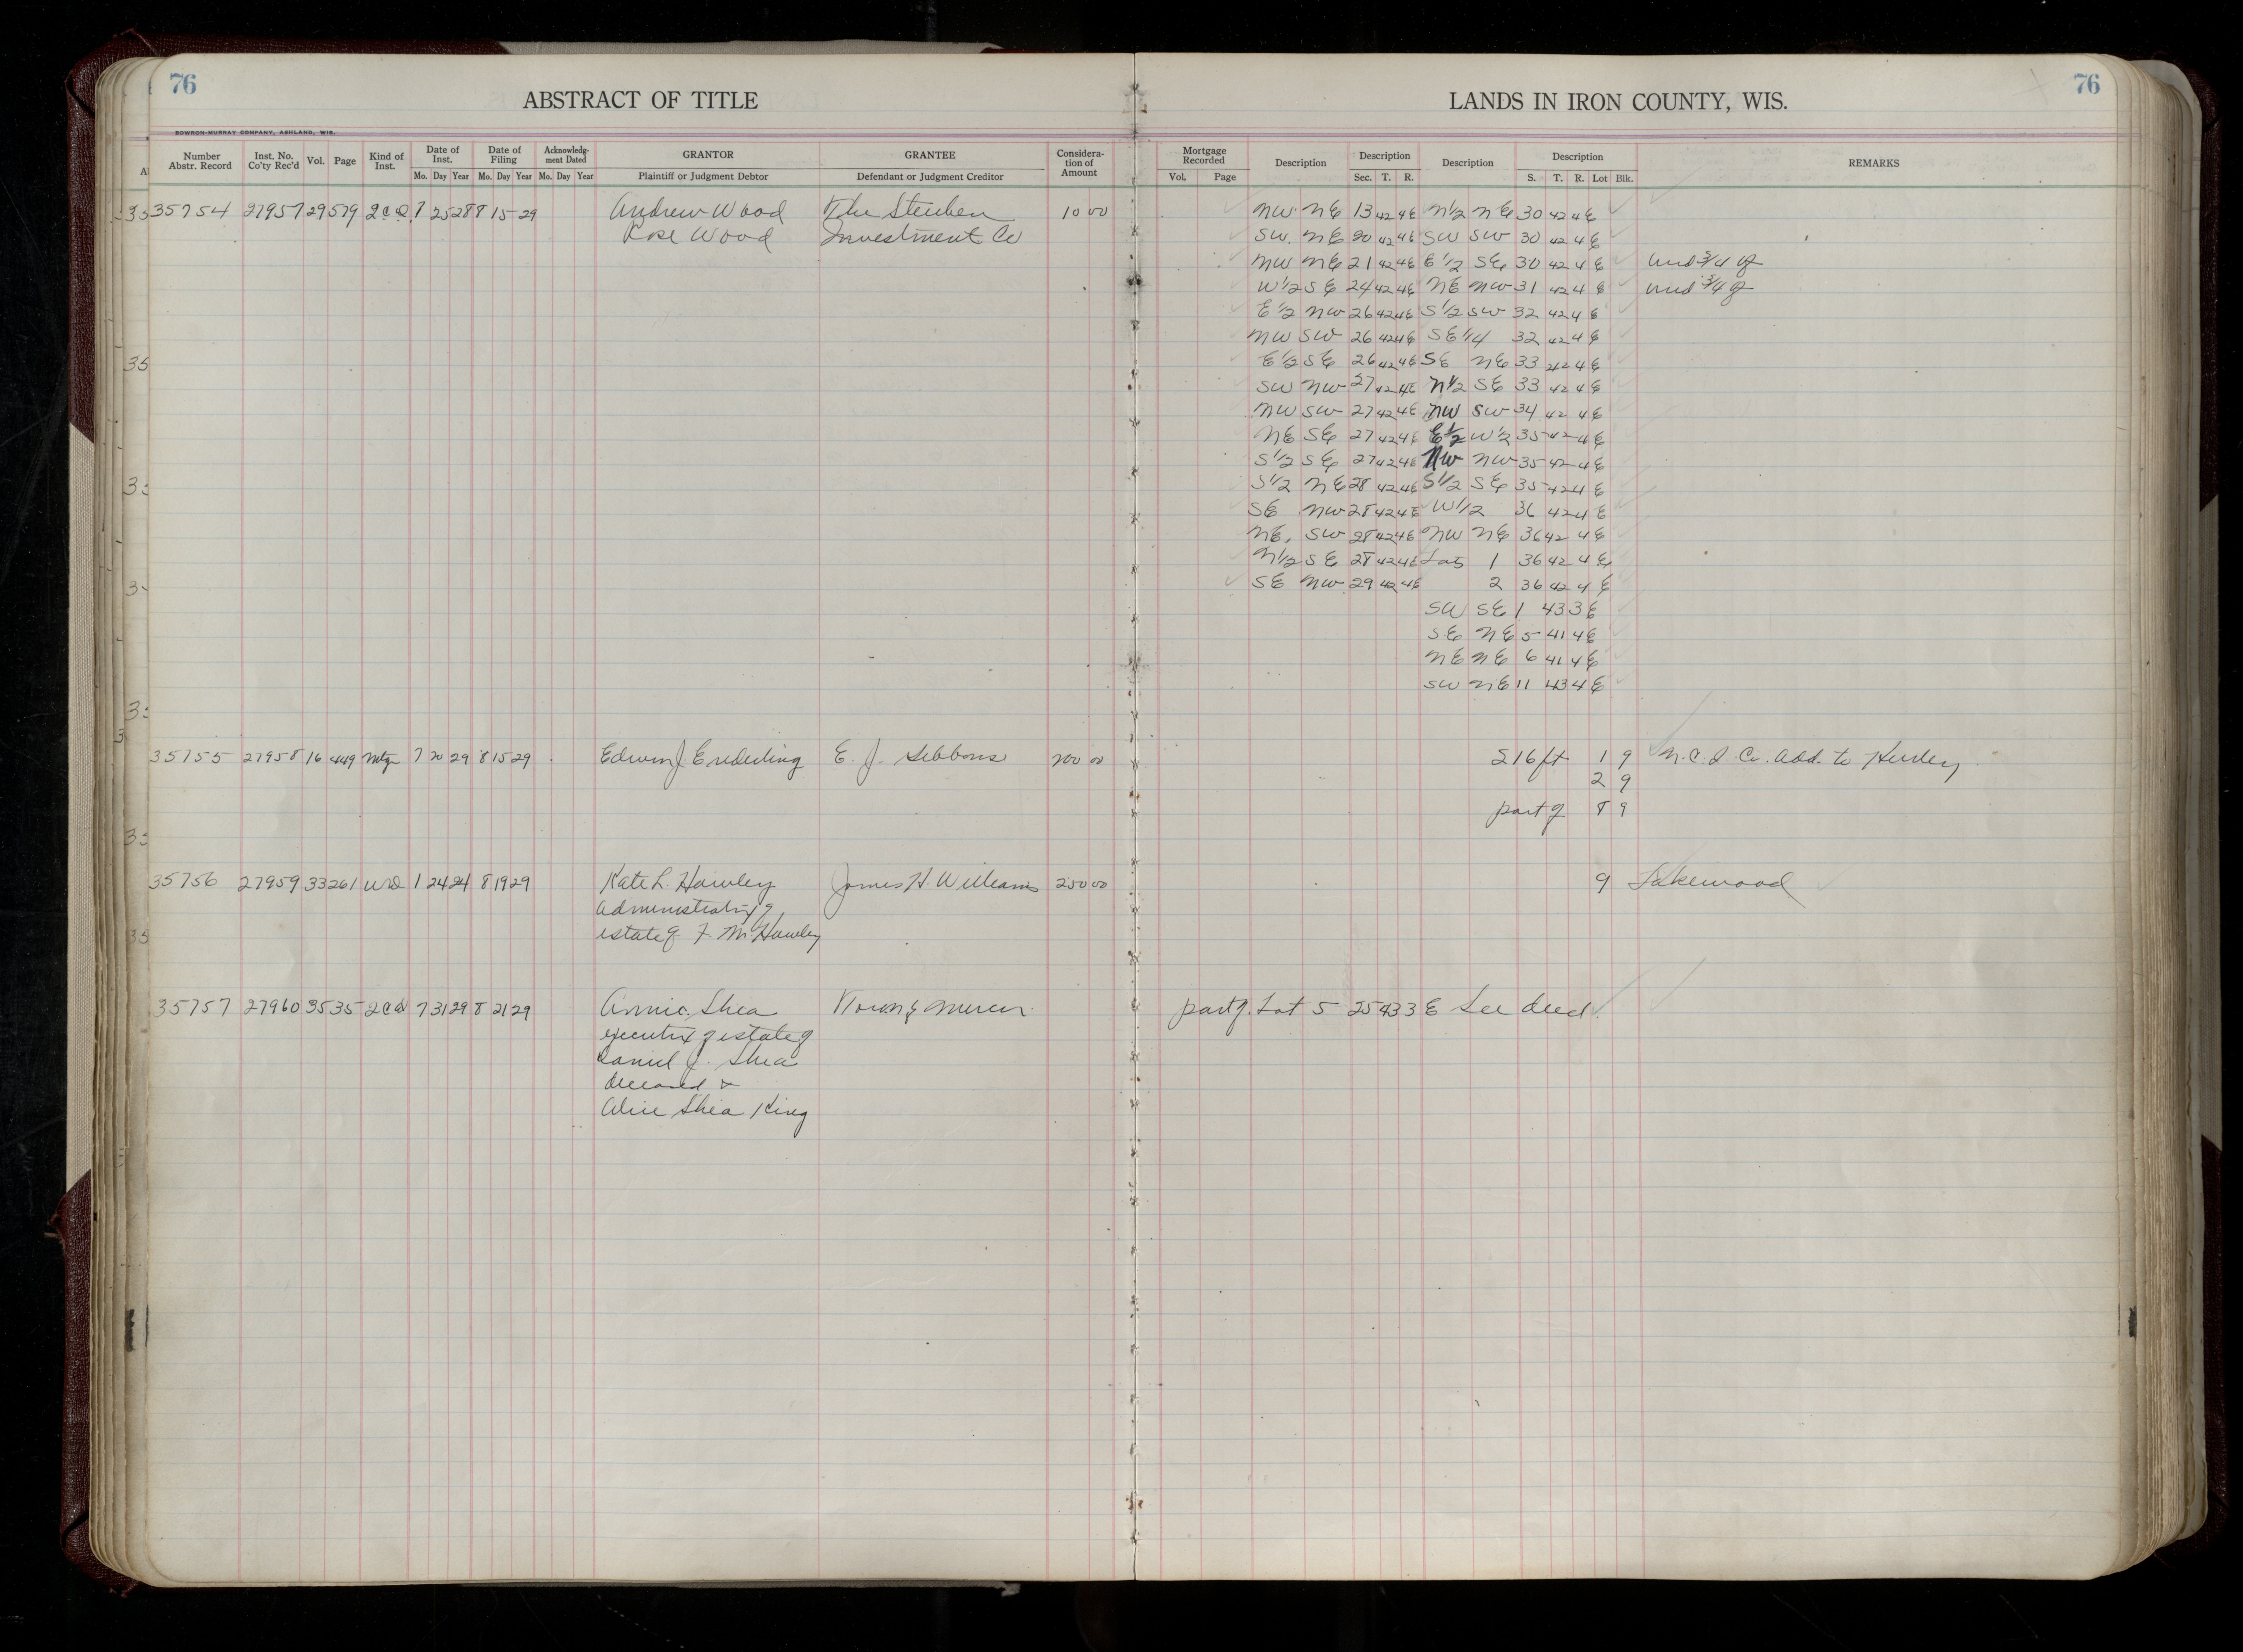 76
ABSTRACT OF TITLE
LANDS IN IRON COUNTY, WIS.
76
BOWRON-MURRAY COMPANY, ASHLAND, WIS.
Number Abstr. Record Inst. No. Co'ty Rec'd Vol. Page Kind of Inst. Date of Inst. Date of Filing Acknowledgment Dated GRANTOR GRANTEE Consideration of Amount Mortgage Recorded Description Description Description Description REMARKS
Mo. Day Year Mo. Day Year Mo. Day Year Plaintiff or Judgment Debtor Defendant or Judgment Creditor Vol. Page Sec. T. R. S. T. R. Lot Blk.
35754 27957 29 579 2 C D 7 25 28 8 15 29 Andrew Wood The Steuben 10 00 NW NE 13 42 4E N1/2 NE 30 42 4 E
Rose Wood Investment Co SW. NE 20 42 4E SW SW 30 42 4 E
NW NE 21 42 4E E1/2 SE 30 42 4 E und 3/4 of
W1/2 SE 24 42 4E NE NW 31 42 4 E und 3/4 of
E1/2 NW 26 42 4E S1/2 SW 32 42 4 E
NW SW 26 42 4E SE1/4 32 42 4 E
E1/2 SE 26 42 4E SE NE 33 42 4 E
SW NW 27 42 4E N1/2 SE 33 42 4 E
NW SW 27 42 4E NW SW 34 42 4 E
NE SE 27 42 4E E1/2 W1/2 35 42 4 E
S1/2 SE 27 42 4E NW NW 35 42 4 E
S1/2 NE 28 42 4E S1/2 SE 35 42 4 E
SE NW 28 42 4E W1/2 36 42 4 E
NE, SW 28 42 4E NW NE 36 42 4 E
N1/2 SE 28 42 4E Lots 1 36 42 4 E
SE NW 29 42 4E 2 36 42 4 E
SW SE 1 43 3 E
SE NE 5 41 4 E
NE NE 6 41 4 E
SW NE 11 43 4 E
35755 27958 16 449 Mtg 7 20 29 8 15 29 Edwin J. E. J. Gibbons 200 00 16 ft 1 9 N.C.I. Co. Add. to Hurley
2 9
part of 8 9
35756 27959 33 261 WD 1 24 24 8 19 29 Kate L. Hawley James H. Williams 250 00 9 Lakewood
estate of F. M. Hawley
35757 27960 35 35 2 C D 7 31 29 8 21 29 Annie Shea Town of Mercer part of Lot 5 25 43 3 E See deed.
executrix of estate of
Daniel J. Shea
deceased &
Alice Shea King